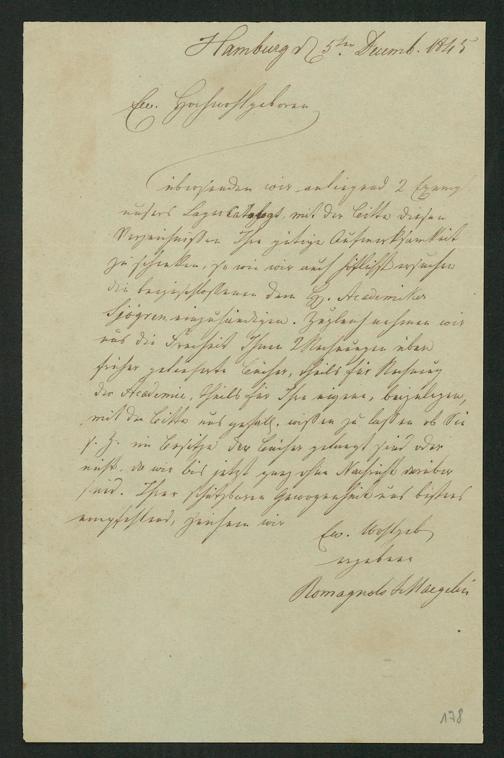 Hamburg d 5ten Decemb. 1845
Ew. Hochwohlgeboren
übersenden wir anliegend 2 Exempl
unsers Lagercatalogs, mit der Bitte diesen
Verzeichnissen Ihre gütige Aufmerksamkeit
zu schenken, so wie wir auch höflichst ersuchen
die beigeschlossenen dem H. Academiker
Sjögren einzuhändigen. Zugleich nehmen wir
uns die Freiheit Ihnen 2 Rechnungen über
früher gelieferte Bücher, theils für Rechnung
der Academie, theils für Ihre eigene, beizulegen,
mit der Bitte uns gefäll. wissen zu lassen ob Sie
s. Z. im Besitze der Bücher gelangt sind oder
nicht, da wir bis jetzt ganz ohne Nachricht darüber
sind. Ihrer schätzbaren Gewogenheit uns bestens
empfehlend, zeichnen wir
Ew. Wohlgeb
ergebene
178